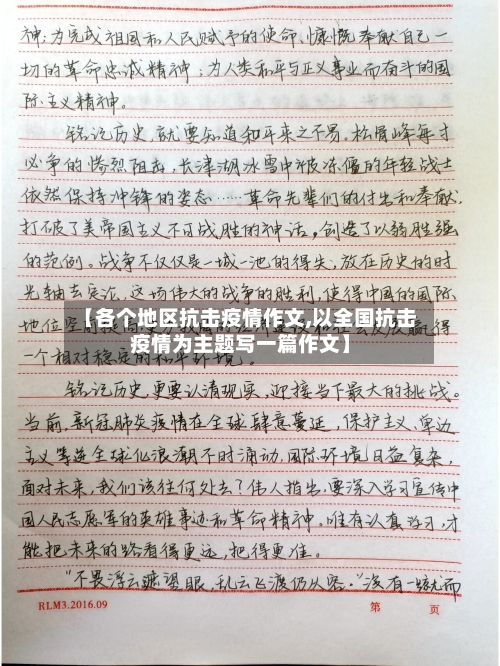 神；为完成祖国和人民赋予的使命、慷慨奉献自己一
切的革命忠诚精神；为人类和平与正义事业而奋斗的国
际主义精神。
铭记历史，就要知道和平来之不易。松骨峰每寸
必争的惨烈阻击，长津湖冰雪中被冻僵的年轻战士
依然保持冲锋的姿态……革命先辈们的付出和奉献，
打破了美帝国主义不可战胜的神话，创造了以弱胜强
的范例。战争不仅仅是一城一池的得失，放在历史的时
光轴去定论，这场伟大的战争的胜利，使得中国的国际
【各个地区抗击疫情作文,以全国抗击
疫情为主题写一篇作文】
地位空前 赢得
一个相对稳定的和平环境。
铭记历史，更要认清现实，迎接当下最大的挑战。
当前，新冠肺炎疫情在全球肆意蔓延，保护主义、单边
主义等逆全球化浪潮不时涌动，国际环境日益复杂，
面对未来，我们该往何处去？伟人指出，要深入学习宣传中
国人民志愿军的英雄事迹和革命精神。唯有认真学习，才
能把未来的路看得更远，把得更准。
“不畏浮云遮望眼，乱云飞渡仍从容。”没有一蹴而
RLM3.2016.09 第 页